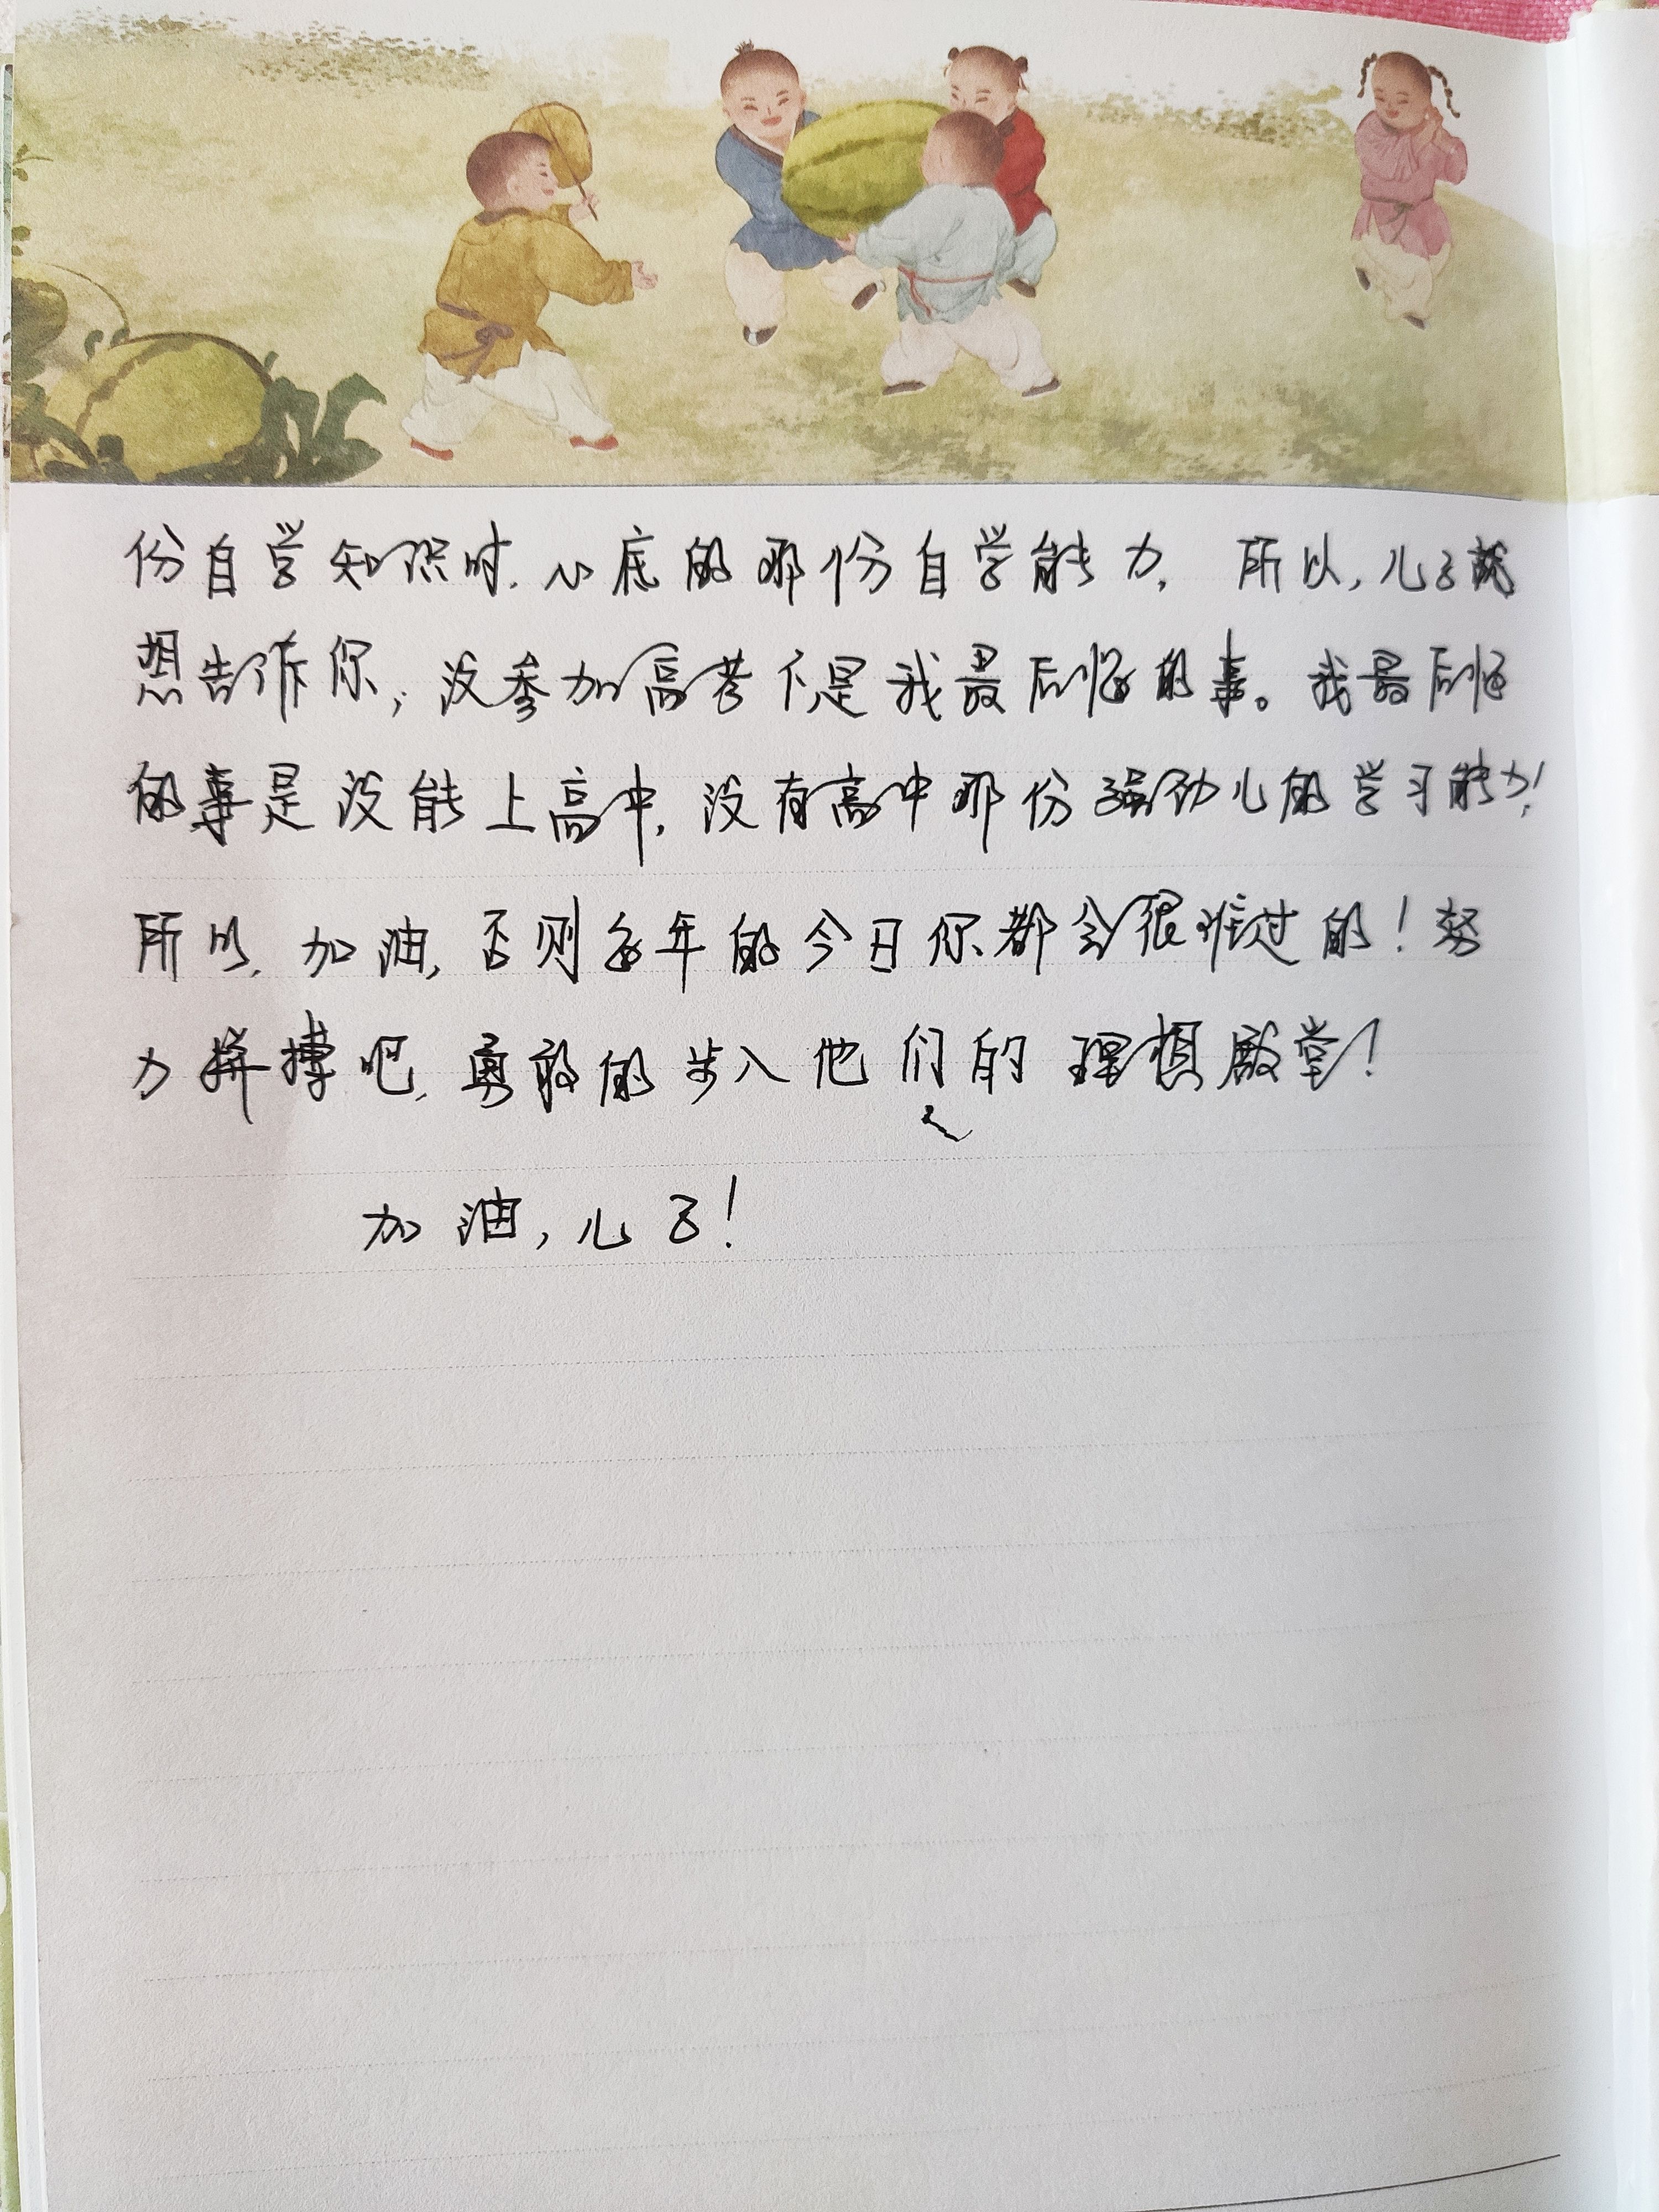 份自学知识时,心底的那份自学能力, 所以,儿子我
想告诉你,没参加高考不是我最后悔的事。我最后悔
的事是没能上高中,没有高中那份强劲儿的学习能力!
所以,加油,否则每年的今日你都会很难过的!努
力拼搏吧,勇敢的步入他们的理想殿堂!
加油,儿子!